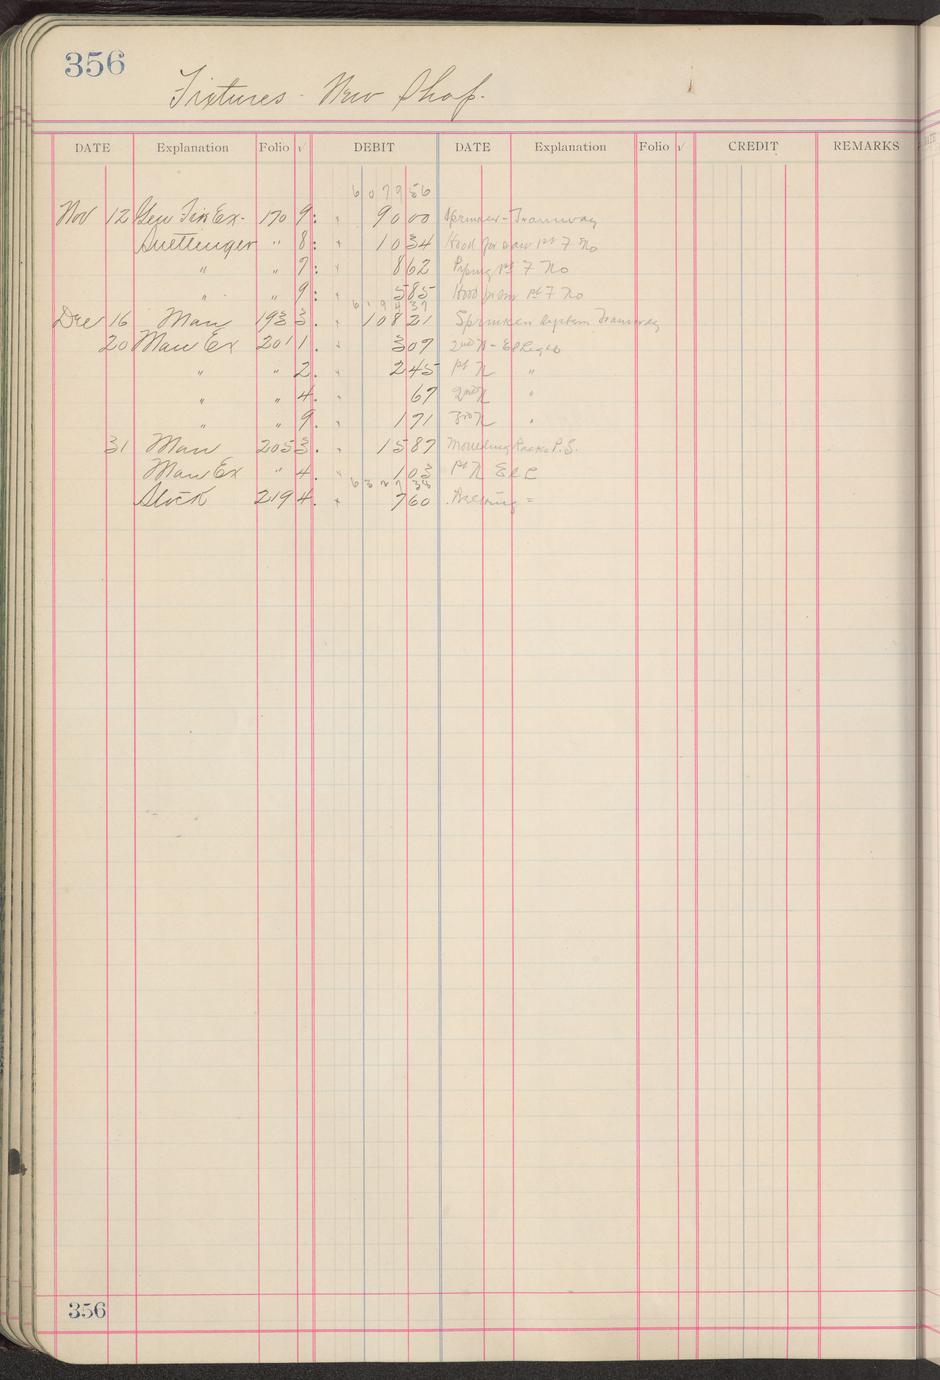 356
Fixtures - New Shop.
DATE Explanation Folio √ DEBIT DATE Explanation Folio √ CREDIT REMARKS
6 0 7 9 56
Nov 12 Gen Fix Ex. 170 9: " 90 00 Sprinkler - Tramway
Suettinger " 8: " 10 34 Hood for saw 1st F No
" " 7: " 8 62 Piping 1st F No
" " 9: " 5 85 Hood 1st F No
6 1 9 4 37
Dec 16 Man 193 3. " 108 21 Sprinkler System Tramway
20 Man Ex 201 1. " 3 07 2nd N -
" " 2. " 2 45 1st N "
" " 4. " 67 2nd N "
" " 9. " 1 71 3rd N "
31 Man 205 3. " 15 87 Moulding Racks P.S.
Man Ex " 4. " 1 03 1st N
6 3 2 7 38
Stock 219 4. " 7 60
356